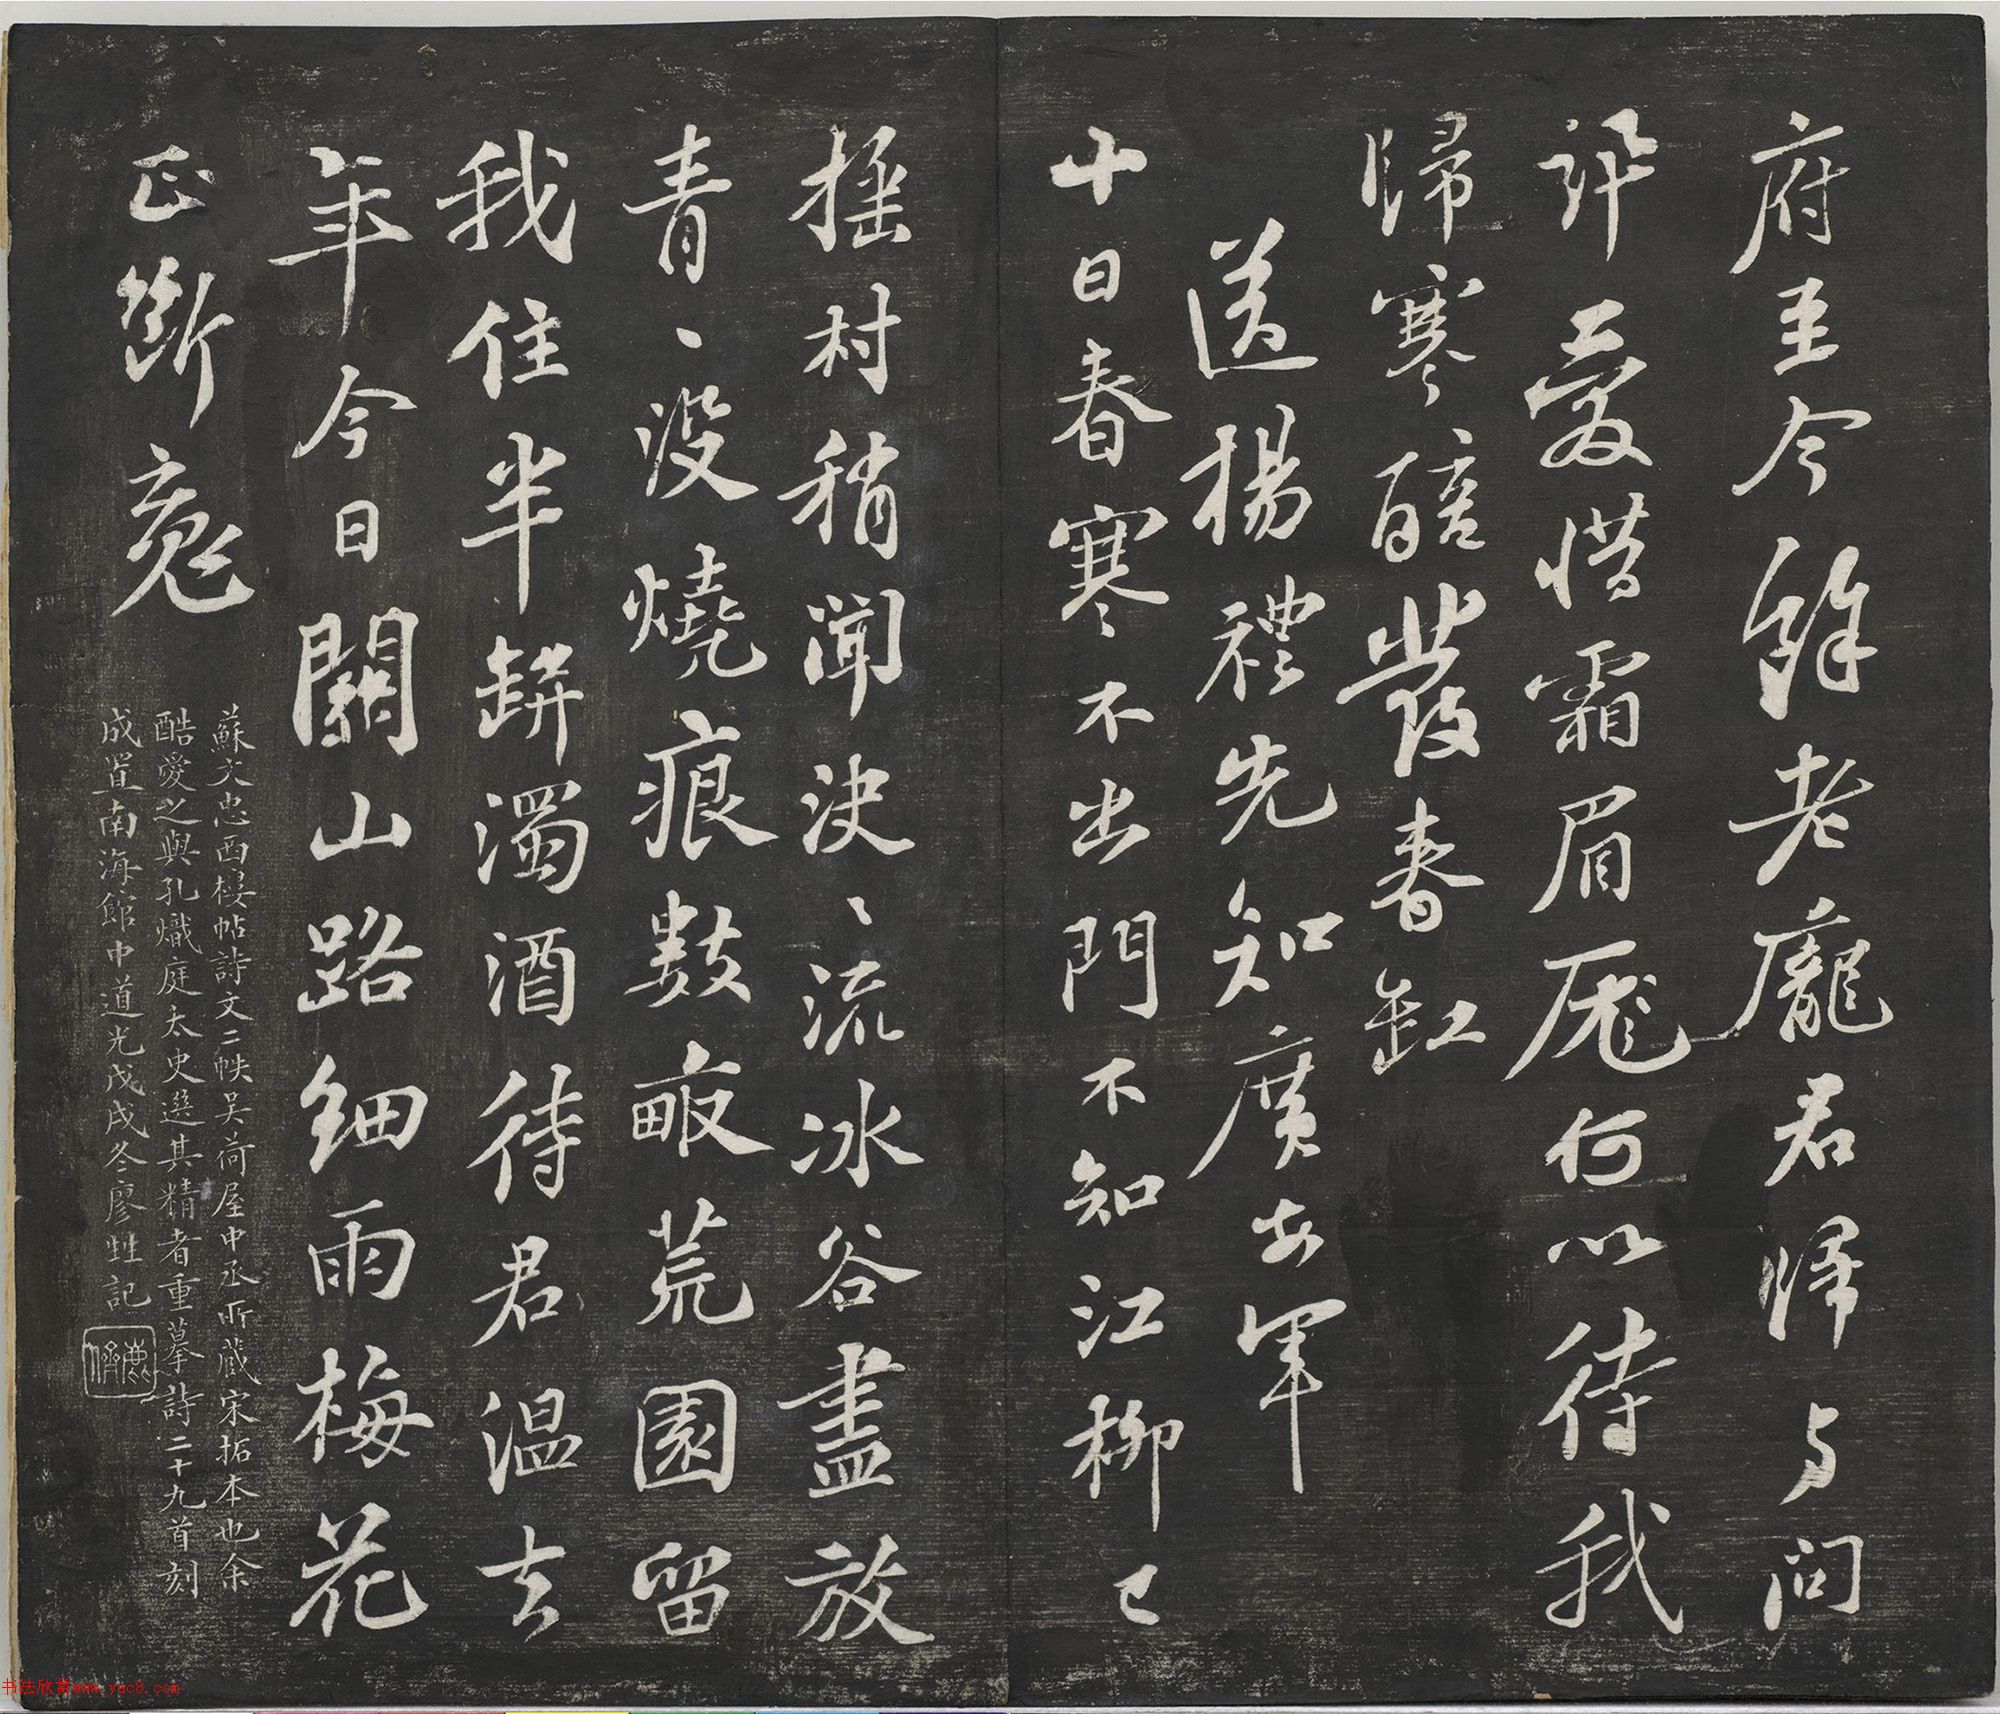 府至今餘老龐君歸與問
訊愛惜霜眉厖何以待我
歸寒醅發春缸
送楊禮先知廣安軍
十日春寒不出門不知江柳已
搖村稍聞決〻流冰谷盡放
青〻沒燒痕數畝荒園留
我住半缾濁酒待君温去
年今日關山路細雨梅花
正斷䰟
蘇文忠西樓帖詩文二帙吴荷屋中丞所蔵宋拓本也余
酷愛之與孔熾庭太史選其精者重摹詩二十九首刻
成置南海館中道光戊戌冬廖甡記
书法欣赏www.yac8.com